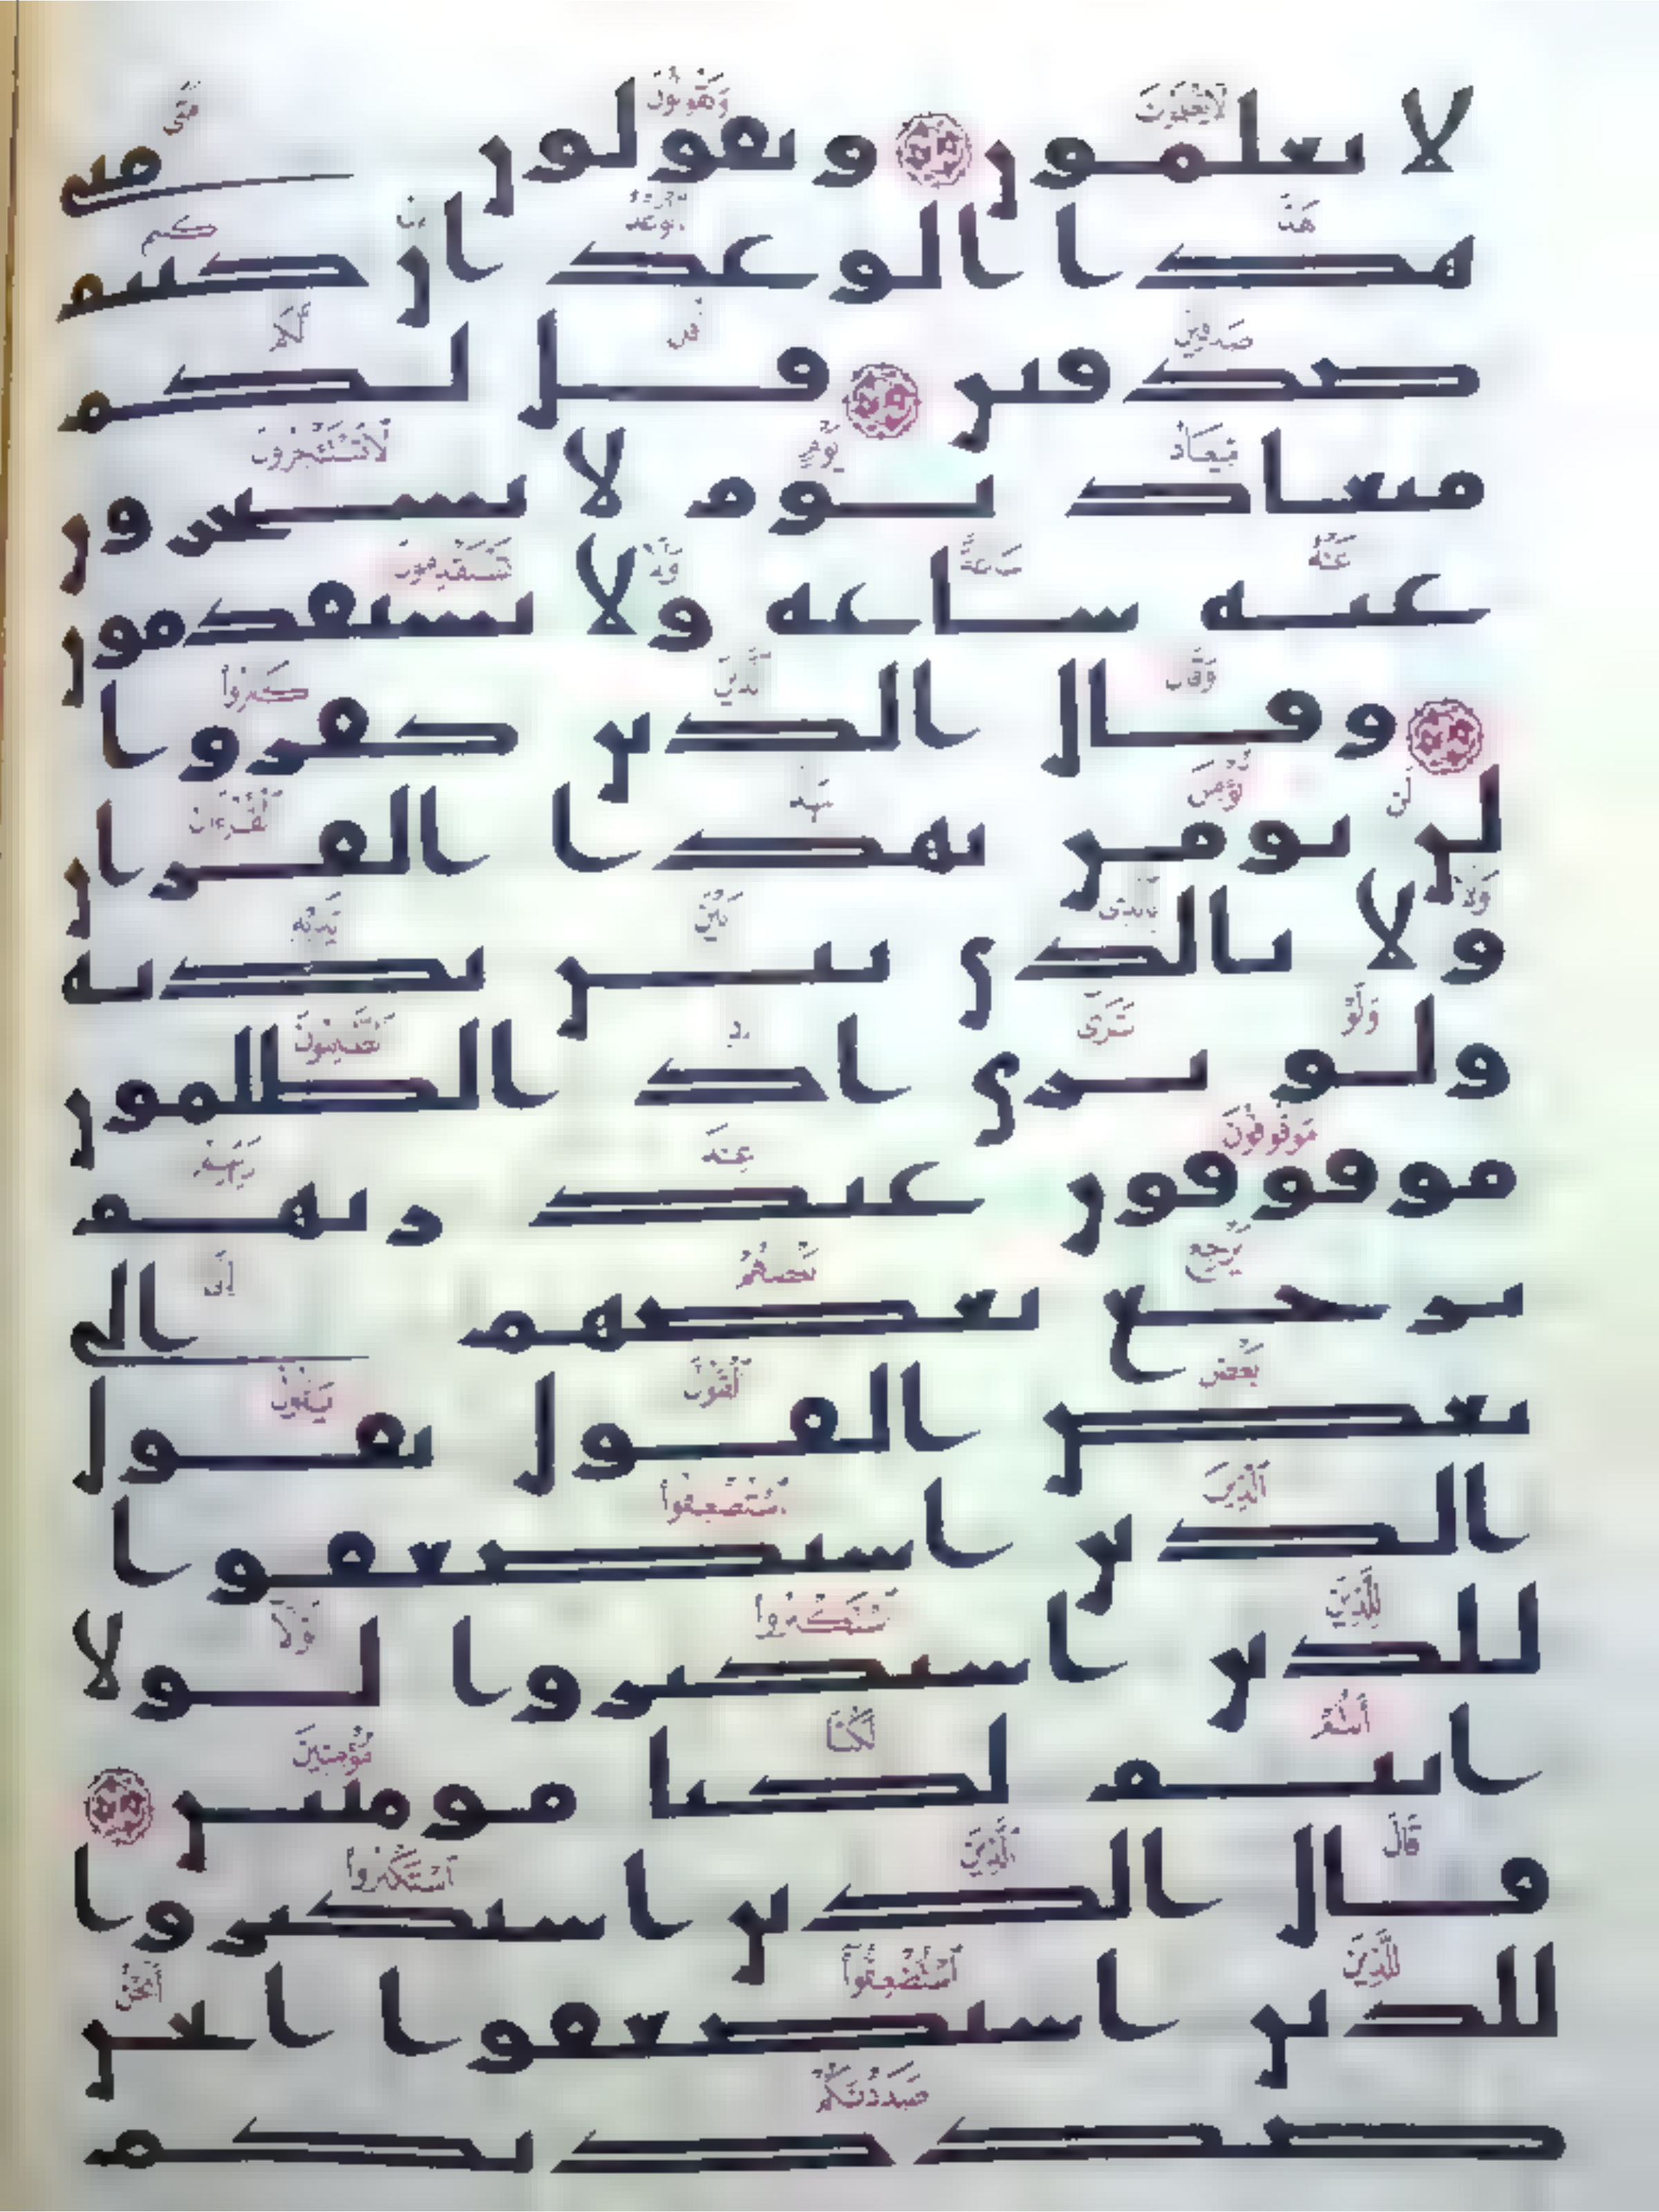 لا يعلمون ويقولون متى
هذا الوعد ان كنتم
صدقين قل لكم
ميعاد يوم لا تستخرون
عنه ساعة ولا تستقدمون
وقال الذين كفروا
لن نومن بهذا القران
ولا بالذي بين يديه
ولو ترى اذ الظلمون
موقوفون عند ربهم
يرجع بعضهم الى
بعض القول يقول
الذين استضعفوا
للذين استكبروا لولا
انتم لكنا مومنين
قال الذين استكبروا
للذين استضعفوا انحن
صددنكم